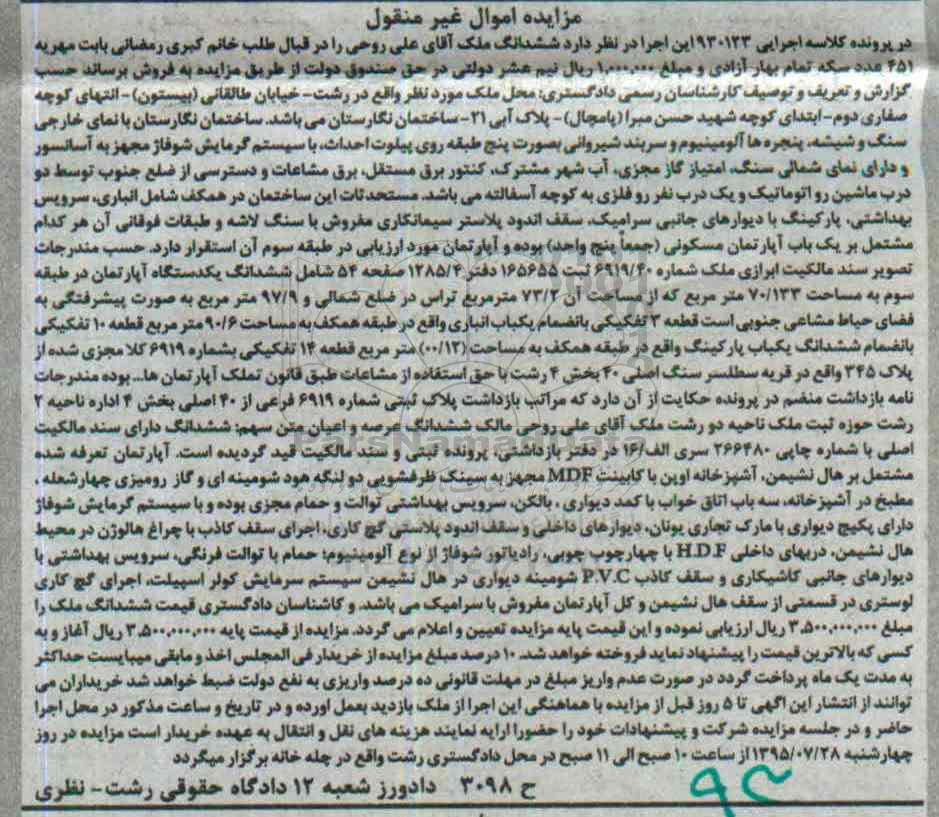 مزایده اموال غیر منقول
در پرونده کلاسه اجرایی ۹۳۰۱۳۳ این اجرا در نظر دارد ششدانگ ملک آقای علی روحی را در قبال طلب خانم کبری رمضانی بابت مهریه
۴۵۱ عدد سکه تمام بهار آزادی و مبلغ ۱,۰۰۰,۰۰۰ ریال نیم عشر دولتی در حق صندوق دولت از طریق مزایده به فروش برساند حسب
گزارش و تعریف و توصیف کارشناسان رسمی دادگستری: محل ملک مورد نظر واقع در رشت- خیابان طالقانی (بیستون)- انتهای کوچه
صفاری دوم- ابتدای کوچه شهید حسن مبرا (پامچال)- پلاک آبی ۲۱- ساختمان نگارستان می باشد. ساختمان نگارستان با نمای خارجی
سنگ و شیشه، پنجره ها آلومینیوم و سربند شیروانی بصورت پنج طبقه روی پیلوت احداث، با سیستم گرمایش شوفاژ مجهز به آسانسور
و دارای نمای شمالی سنگ، امتیاز گاز مجزی، آب شهر مشترک، کنتور برق مستقل، برق مشاعات و دسترسی از ضلع جنوب توسط دو
درب ماشین رو اتوماتیک و یک درب نفر رو فلزی به کوچه آسفالته می باشد. مستحدثات این ساختمان در همکف شامل انباری، سرویس
بهداشتی، پارکینگ با دیوارهای جانبی سرامیک، سقف اندود پلاستر سیمانکاری مفروش با سنگ لاشه و طبقات فوقانی آن هر کدام
مشتمل بر یک باب آپارتمان مسکونی (جمعاً پنج واحد) بوده و آپارتمان مورد ارزیابی در طبقه سوم آن استقرار دارد. حسب مندرجات
تصویر سند مالکیت ابرازی ملک شماره ۶۹۱۹/۴۰ ثبت ۱۶۵۶۵۵ دفتر ۱۲۸۵/۴ صفحه ۵۴ شامل ششدانگ یکدستگاه آپارتمان در طبقه
سوم به مساحت ۷۰/۱۳۳ متر مربع که از مساحت آن ۷۳/۲ مترمربع تراس در ضلع شمالی و ۹۷/۹ متر مربع به صورت پیشرفتگی به
فضای حیاط مشاعی جنوبی است قطعه ۳ تفکیکی بانضمام یکباب انباری واقع در طبقه همکف به مساحت ۹۰/۶ متر مربع قطعه ۱۰ تفکیکی
بانضمام ششدانگ یکباب پارکینگ واقع در طبقه همکف به مساحت (۰۰/۱۲) متر مربع قطعه ۱۴ تفکیکی بشماره ۶۹۱۹ کلا مجزی شده از
پلاک ۳۴۵ واقع در قریه سطلسر سنگ اصلی ۴۰ بخش ۴ رشت با حق استفاده از مشاعات طبق قانون تملک آپارتمان ها... بوده مندرجات
نامه بازداشت منضم در پرونده حکایت از آن دارد که مراتب بازداشت پلاک ثبتی شماره ۶۹۱۹ فرعی از ۴۰ اصلی بخش ۴ اداره ناحیه ۲
رشت حوزه ثبت ملک ناحیه دو رشت ملک آقای علی روحی مالک ششدانگ عرصه و اعیان متن سهم: ششدانگ دارای سند مالکیت
اصلی با شماره چاپی ۲۶۶۴۸۰ سری الف/۱۶ در دفتر بازداشتی، پرونده ثبتی و سند مالکیت قید گردیده است. آپارتمان تعرفه شده
مشتمل بر هال نشیمن، آشپزخانه اوپن با کابینت MDF مجهز به سینک ظرفشویی دو لنگه هود شومینه ای و گاز رومیزی چهارشعله،
مطبخ در آشپزخانه، سه باب اتاق خواب با کمد دیواری، بالکن، سرویس بهداشتی توالت و حمام مجزی بوده و با سیستم گرمایش شوفاژ
دارای پکیج دیواری با مارک تجاری یونان، دیوارهای داخلی و سقف اندود پلاستر گچ کاری، اجرای سقف کاذب با چراغ هالوژن در محیط
هال نشیمن، دربهای داخلی H.D.F با چهارچوب چوبی، رادیاتور شوفاژ از نوع آلومینیوم؛ حمام با توالت فرنگی، سرویس بهداشتی با
دیوارهای جانبی کاشیکاری و سقف کاذب P.V.C شومینه دیواری در هال نشیمن سیستم سرمایش کولر اسپیلت، اجرای گچ کاری
لوستری در قسمتی از سقف هال نشیمن و کل آپارتمان مفروش با سرامیک می باشد. و کاشناسان دادگستری قیمت ششدانگ ملک را
مبلغ ۳,۵۰۰,۰۰۰,۰۰۰ ریال ارزیابی نموده و این قیمت پایه مزایده تعیین و اعلام می گردد. مزایده از قیمت پایه ۳,۵۰۰,۰۰۰,۰۰۰ ریال آغاز و به
کسی که بالاترین قیمت را پیشنهاد نماید فروخته خواهد شد. ۱۰ درصد مبلغ مزایده از خریدار فی المجلس اخذ و مابقی میبایست حداکثر
به مدت یک ماه پرداخت گردد در صورت عدم واریز مبلغ در مهلت قانونی ده درصد واریزی به نفع دولت ضبط خواهد شد خریداران می
توانند از انتشار این اگهی تا ۵ روز قبل از مزایده با هماهنگی این اجرا از ملک بازدید بعمل اورده و در تاریخ و ساعت مذکور در محل اجرا
حاضر و در جلسه مزایده شرکت و پیشنهادات خود را حضورا ارایه نمایند هزینه های نقل و انتقال به عهده خریدار است مزایده در روز
چهارشنبه ۱۳۹۵/۰۷/۲۸ از ساعت ۱۰ صبح الی ۱۱ صبح در محل دادگستری رشت واقع در چله خانه برگزار میگردد
ح ۳۰۹۸ دادورز شعبه ۱۲ دادگاه حقوقی رشت- نظری
ParsNamadData